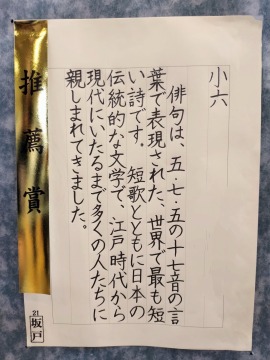 小六
俳句は、五・七・五の十七音の言
葉で表現された、世界で最も短
い詩です。短歌とともに日本の
伝統的な文学で、江戸時代から
現代にいたるまで多くの人たちに
親しまれてきました。
推薦賞
21
坂戸